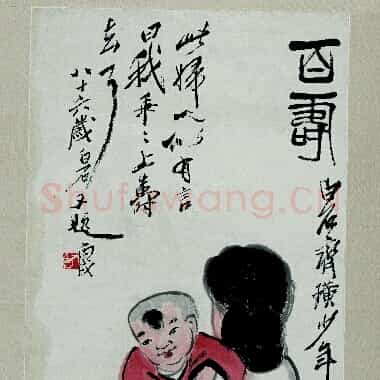 百壽
白石齊璜少年
此婦心似有言
曰我乖乖上壽
去了
八十六歲白石又題 丙戌
Shufawang.cn